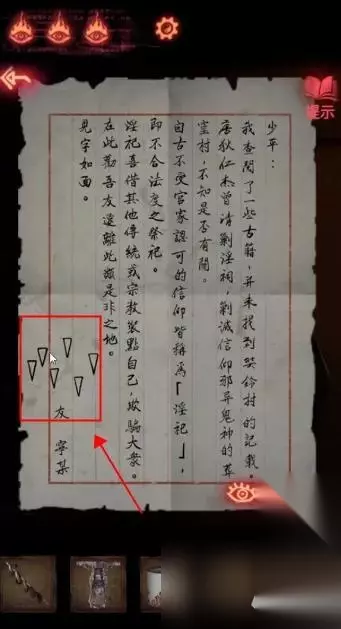 提示
少平：
我查閱了一些古籍，并未找到哭鈴村的記載。
唐狄仁杰曾清剿淫祠，剿滅信仰邪异鬼神的草
蛮村，不知是否有關。
自古不受官家認可的信仰皆稱爲「淫祀」，
即不合法度之祭祀。
淫祀喜借其他傳統或宗教裝點自己，欺騙大衆。
在此勸吾友遠離此類是非之地。
見字如面。
友
寧某